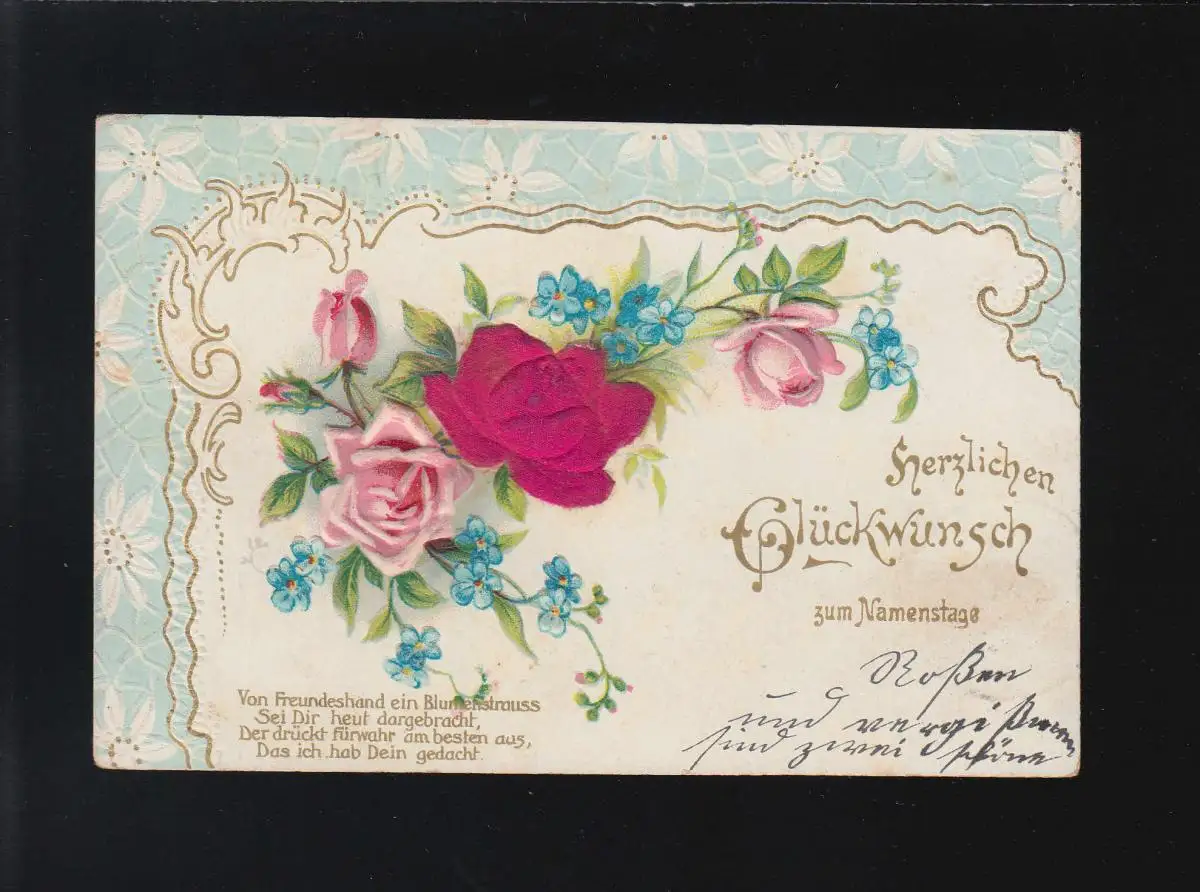 Herzlichen
Glückwunsch
zum Namenstage
Von Freundeshand ein Blumenstrauss
Sei Dir heut dargebracht,
Der drückt fürwahr am besten aus,
Das ich hab Dein gedacht.
Roßen
und vergißmein
sind zwei schöne